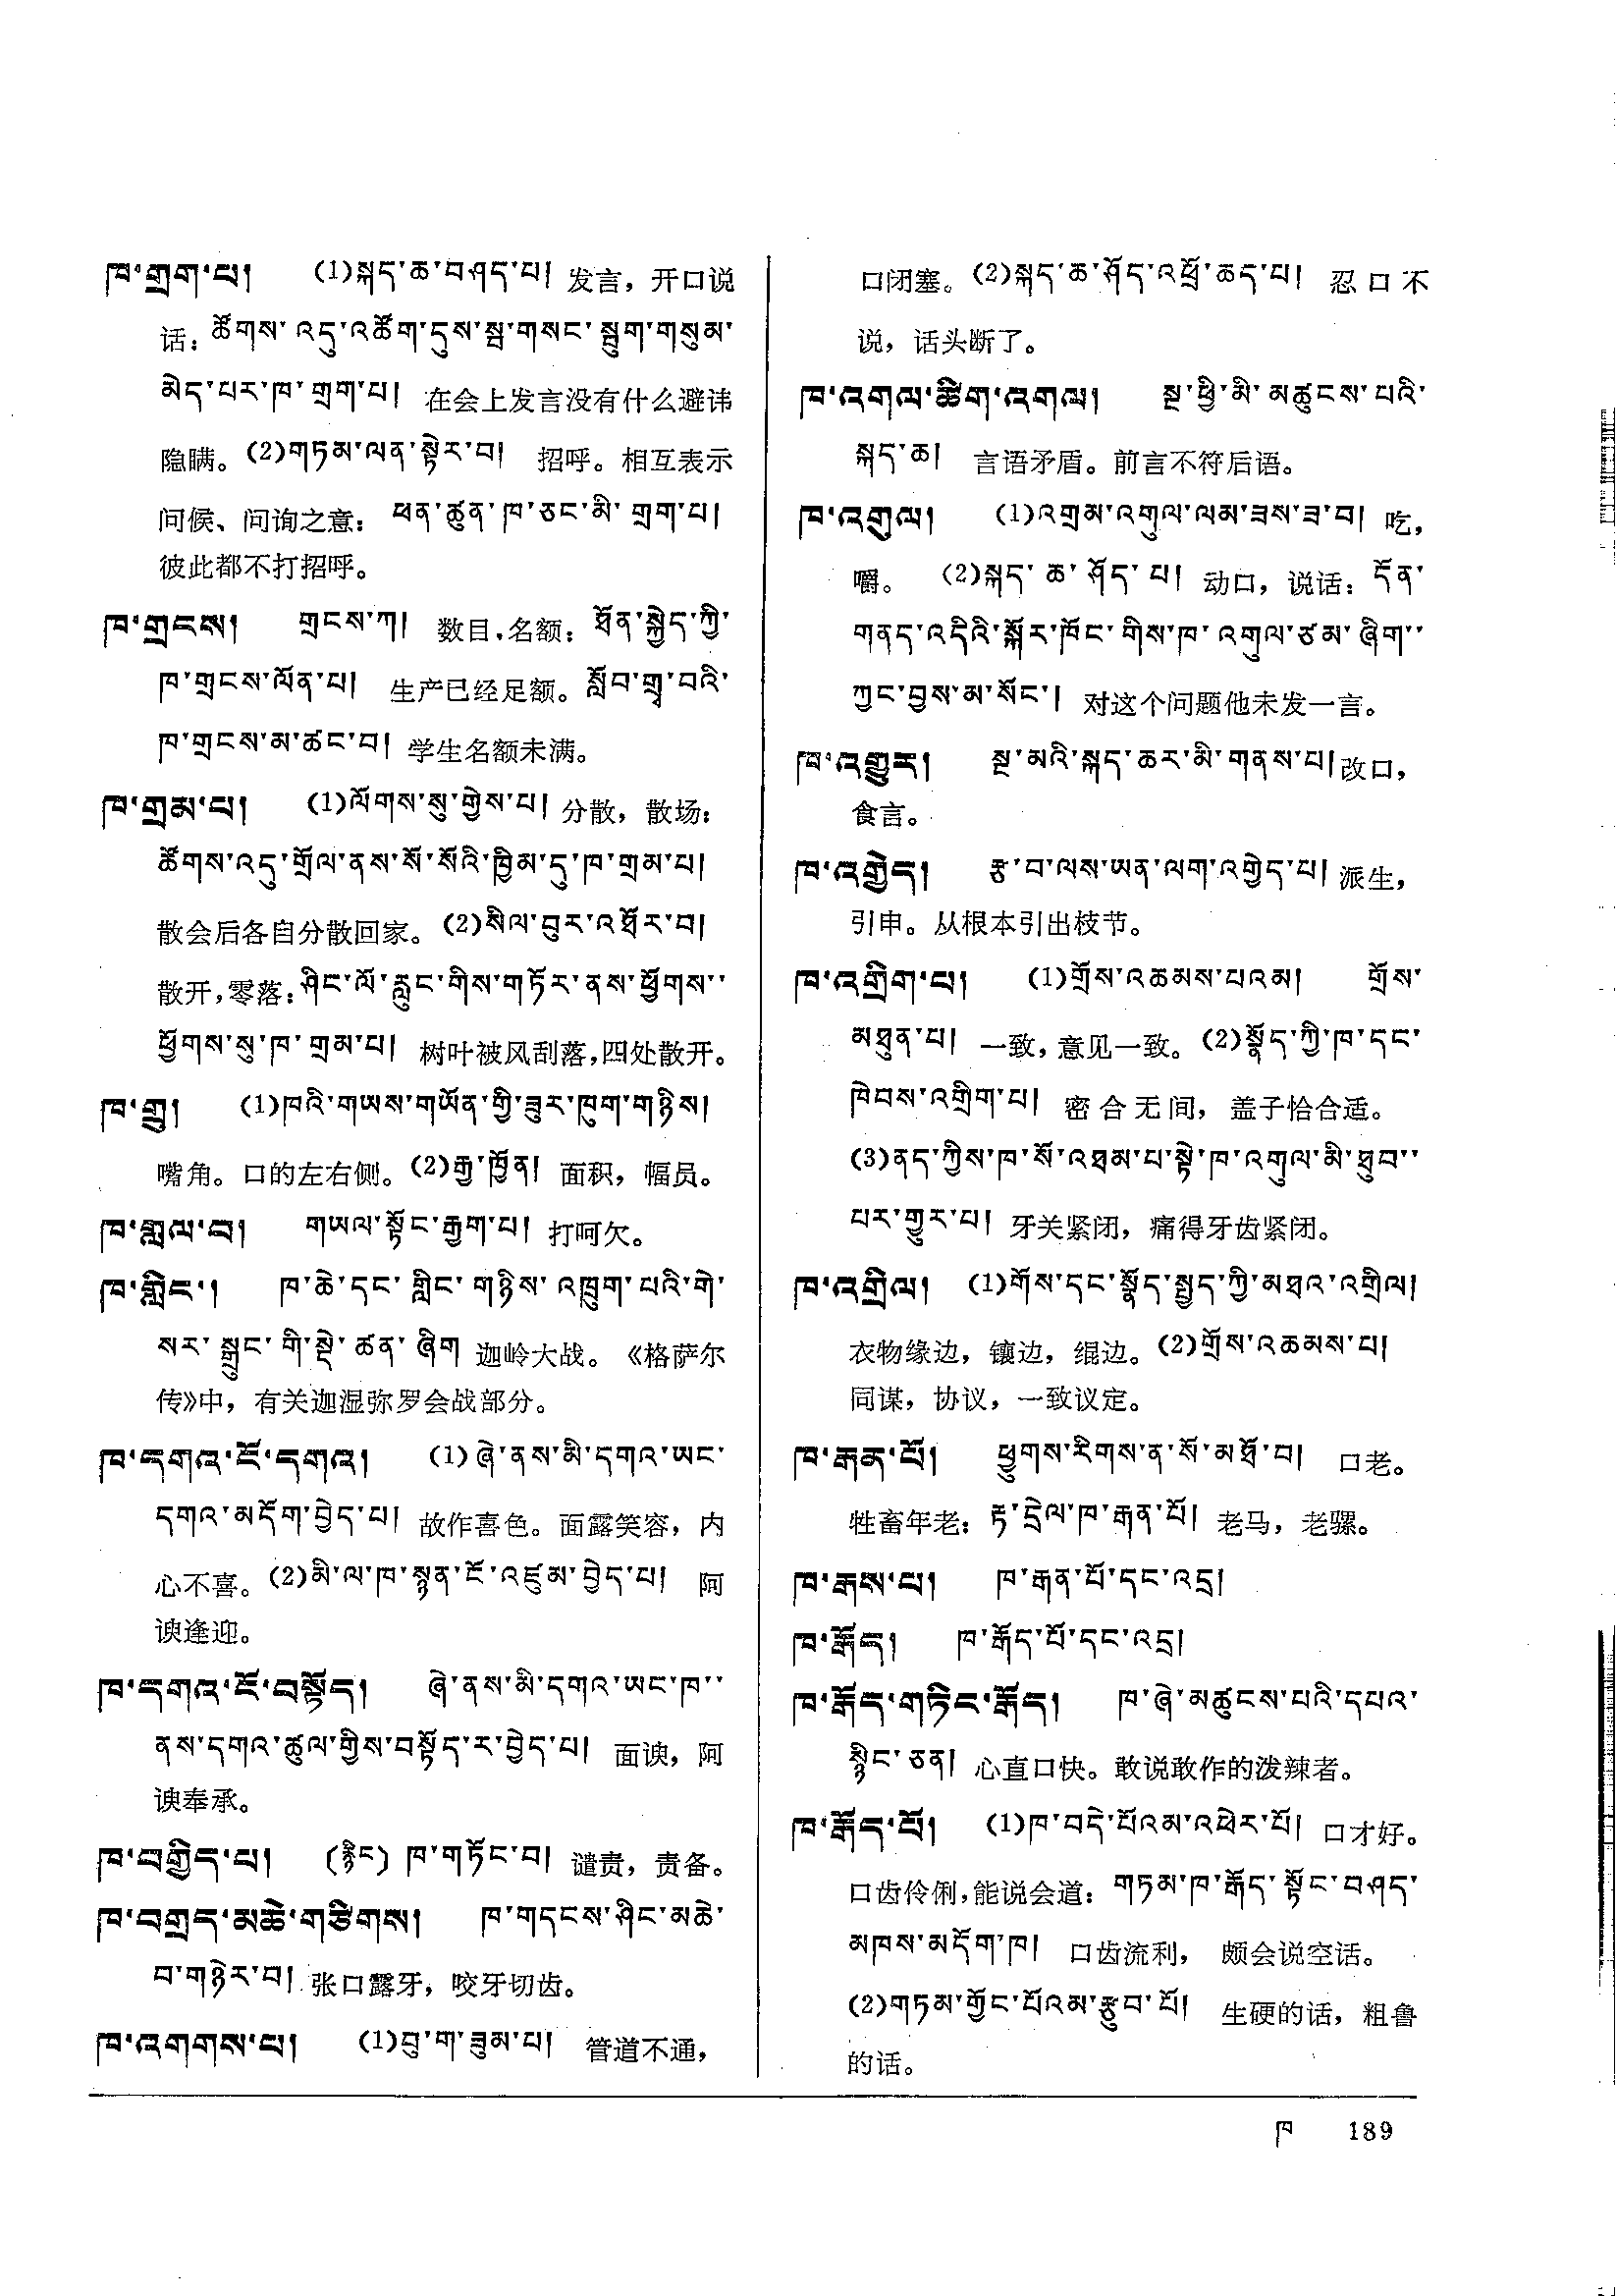 ཁ་གྲག་པ། (1)སྐད་ཆ་བཤད་པ། 发言，开口说
话：ཚོགས་འདུ་འཚོག་དུས་སྦ་གསང་སྦུག་གསུམ་
མེད་པར་ཁ་གྲག་པ། 在会上发言没有什么避讳
隐瞒。(2)གཏམ་ལན་སྟེར་བ། 招呼。相互表示
问候、问询之意：ཕན་ཚུན་ཁ་ཅང་མི་གྲག་པ།
彼此都不打招呼。
ཁ་གྲངས། གྲངས་ཀ། 数目，名额：ཐོན་སྐྱེད་ཀྱི་
ཁ་གྲངས་ལོན་པ། 生产已经足额。སློབ་གྲྭ་བའི་
ཁ་གྲངས་མ་ཚང་བ། 学生名额未满。
ཁ་གྲམ་པ། (1)ལོགས་སུ་གྱེས་པ། 分散，散场：
ཚོགས་འདུ་གྲོལ་ནས་སོ་སོའི་ཁྱིམ་དུ་ཁ་གྲམ་པ།
散会后各自分散回家。(2)སིལ་བུར་འཐོར་བ།
散开，零落：ཤིང་ལོ་རླུང་གིས་གཏོར་ནས་ཕྱོགས་་
ཕྱོགས་སུ་ཁ་གྲམ་པ། 树叶被风刮落，四处散开。
ཁ་གྲུ། (1)ཁའི་གཡས་གཡོན་གྱི་ཟུར་ཁུག་གཉིས།
嘴角。口的左右侧。(2)རྒྱ་ཁྱོན། 面积，幅员。
ཁ་གླལ་བ། གཡལ་སྟོང་རྒྱག་པ། 打呵欠。
ཁ་གླིང་། ཁ་ཆེ་དང་གླིང་གཉིས་འཁྲུག་པའི་གེ་
སར་སྒྲུང་གི་སྡེ་ཚན་ཞིག 迦岭大战。《格萨尔
传》中，有关迦湿弥罗会战部分。
ཁ་དགའ་ངོ་དགའ། (1)ཞེ་ནས་མི་དགའ་ཡང་
དགའ་མདོག་བྱེད་པ། 故作喜色。面露笑容，内
心不喜。(2)མི་ལ་ཁ་སྙན་ངོ་འཛུམ་བྱེད་པ། 阿
谀逢迎。
ཁ་དགའ་ངོ་བསྟོད། ཞེ་ནས་མི་དགའ་ཡང་ཁ་་
ནས་དགའ་ཚུལ་གྱིས་བསྟོད་ར་བྱེད་པ། 面谀，阿
谀奉承。
ཁ་བགྱིད་པ། (རྙིང) ཁ་གཏོང་བ། 谴责，责备。
ཁ་བགྲད་མཆེ་གཙིགས། ཁ་གདངས་ཤིང་མཆེ་
བ་གཉེར་བ། 张口露牙，咬牙切齿。
ཁ་འགགས་པ། (1)བུ་ག་ཟུམ་པ། 管道不通，
口闭塞。(2)སྐད་ཆ་ཤོད་འཕྲོ་ཆད་པ། 忍口不
说，话头断了。
ཁ་འགལ་ཚིག་འགལ། སྔ་ཕྱི་མི་མཚུངས་པའི་
སྐད་ཆ། 言语矛盾。前言不符后语。
ཁ་འགུལ། (1)འགྲམ་འགུལ་ལམ་ཟས་ཟ་བ། 吃，
嚼。 (2)སྐད་ཆ་ཤོད་པ། 动口，说话：དོན་
གནད་འདིའི་སྐོར་ཁོང་གིས་ཁ་འགུལ་ཙམ་ཞིག་་
ཀྱང་བྱས་མ་སོང་། 对这个问题他未发一言。
ཁ་འགྱུར། སྔ་མའི་སྐད་ཆར་མི་གནས་པ། 改口，
食言。
ཁ་འགྱེད། རྩ་བ་ལས་ཡན་ལག་འགྱེད་པ། 派生，
引申。从根本引出枝节。
ཁ་འགྲིག་པ། (1)གྲོས་འཆམས་པའམ། གྲོས་
མཐུན་པ། 一致，意见一致。(2)སྣོད་ཀྱི་ཁ་དང་
ཁེབས་འགྲིག་པ། 密合无间，盖子恰合适。
(3)ནད་ཀྱིས་ཁ་སོ་འཐམ་པ་སྟེ་ཁ་འགུལ་མི་ཐུབ་་
པར་གྱུར་པ། 牙关紧闭，痛得牙齿紧闭。
ཁ་འགྲིལ། (1)གོས་དང་སྣོད་སྤྱད་ཀྱི་མཐའ་འགྲིལ།
衣物缘边，镶边，绲边。(2)གྲོས་འཆམས་པ།
同谋，协议，一致议定。
ཁ་རྒན་པོ། ཕྱུགས་རིགས་ན་སོ་མཐོ་བ། 口老。
牲畜年老：རྟ་དྲེལ་ཁ་རྒན་པོ། 老马，老骡。
ཁ་རྒས་པ། ཁ་རྒན་པོ་དང་འདྲ།
ཁ་རྒོད། ཁ་རྒོད་པོ་དང་འདྲ།
ཁ་རྒོད་གཏིང་རྒོད། ཁ་ཞེ་མཚུངས་པའི་དཔའ་
སྙིང་ཅན། 心直口快。敢说敢作的泼辣者。
ཁ་རྒོད་པོ། (1)ཁ་བདེ་པོའམ་འཕེར་པོ། 口才好。
口齿伶俐，能说会道：གཏམ་ཁ་རྒོད་སྟོང་བཤད་
མཁས་མདོག་ཁ། 口齿流利， 颇会说空话。
(2)གཏམ་གྱོང་པོའམ་རྩུབ་པོ། 生硬的话，粗鲁
的话。
ཁ 189